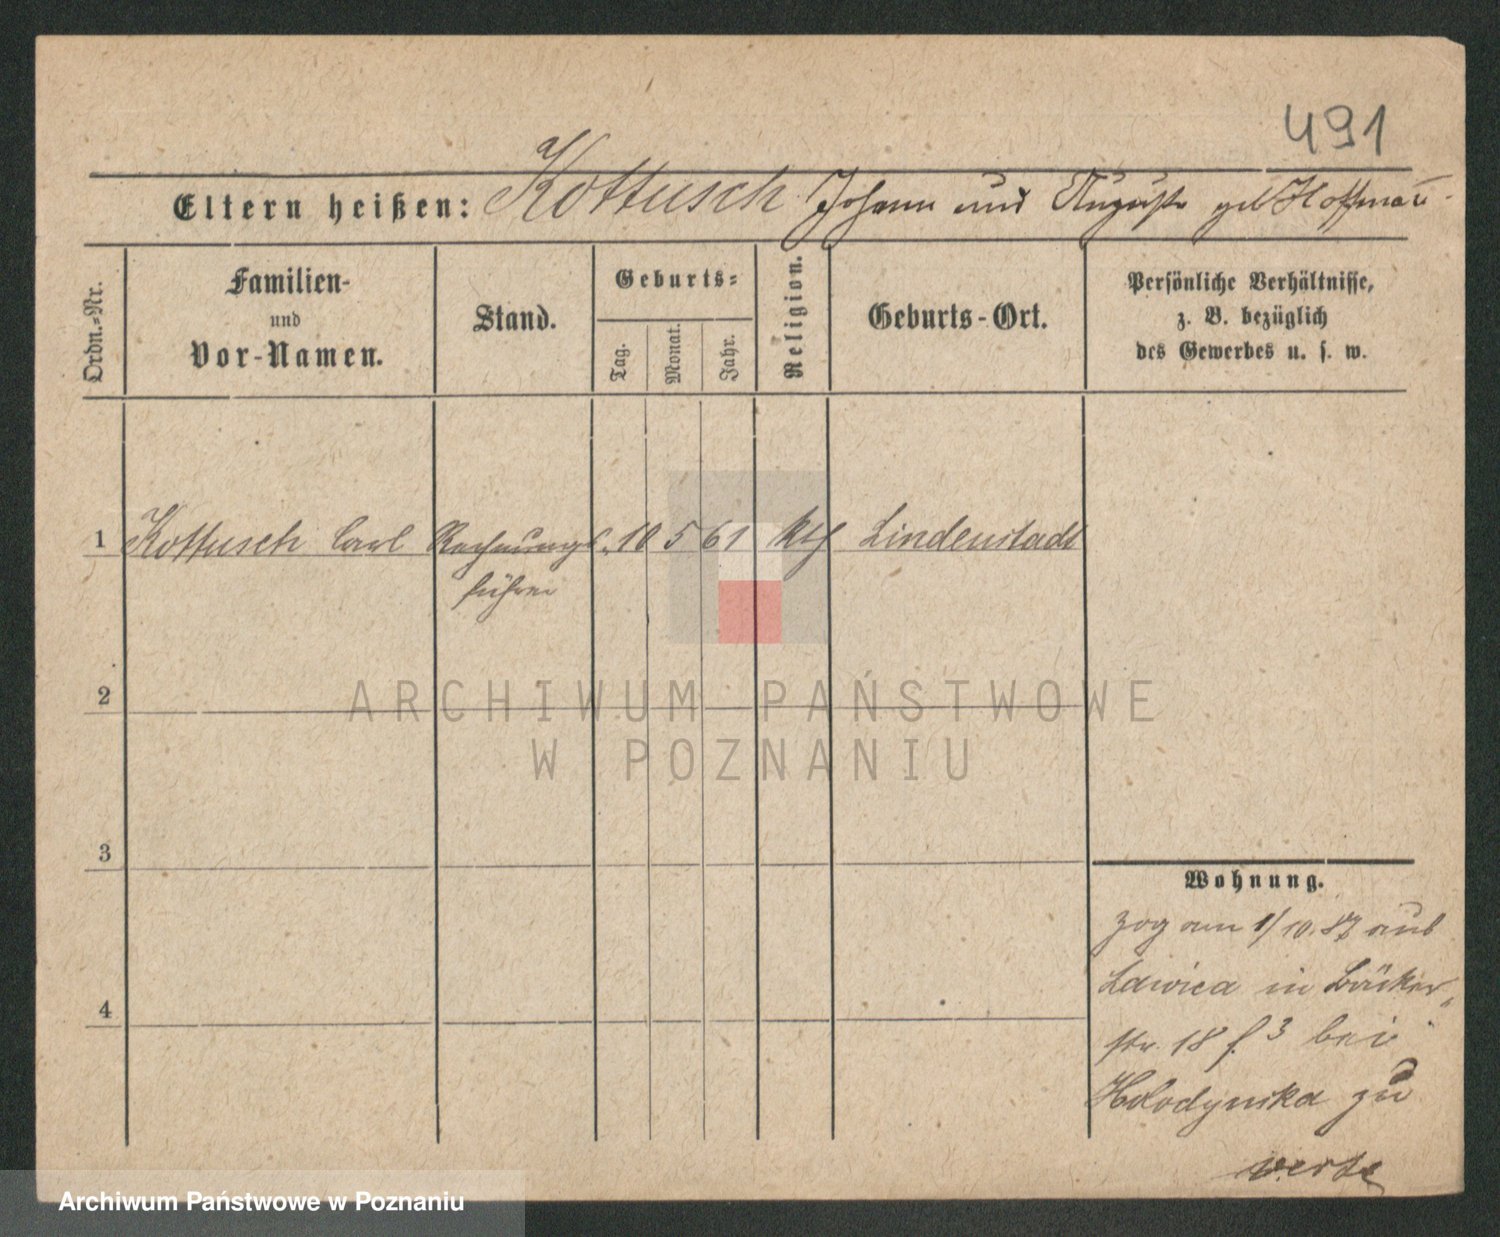 491
Eltern heißen: Kottusch Johann und Auguste geb Hoffmann
Ordn.-Nr.
Familien-
und
Vor-Namen.
Stand.
Geburts-
Tag.
Monat.
Jahr.
Religion.
Geburts-Ort.
Persönliche Verhältnisse,
z. B. bezüglich
des Gewerbes u. s. w.
1 Kottusch Carl Rechnungs- 10 5 61 kth Lindenstadt
führer
2
3
4
Wohnung.
zog am 1/10.87 aus
Lawica in Bäcker-
str. 18 f. 3 bei
Holodynska zu
verte
ARCHIWUM PAŃSTWOWE
W POZNANIU
Archiwum Państwowe w Poznaniu